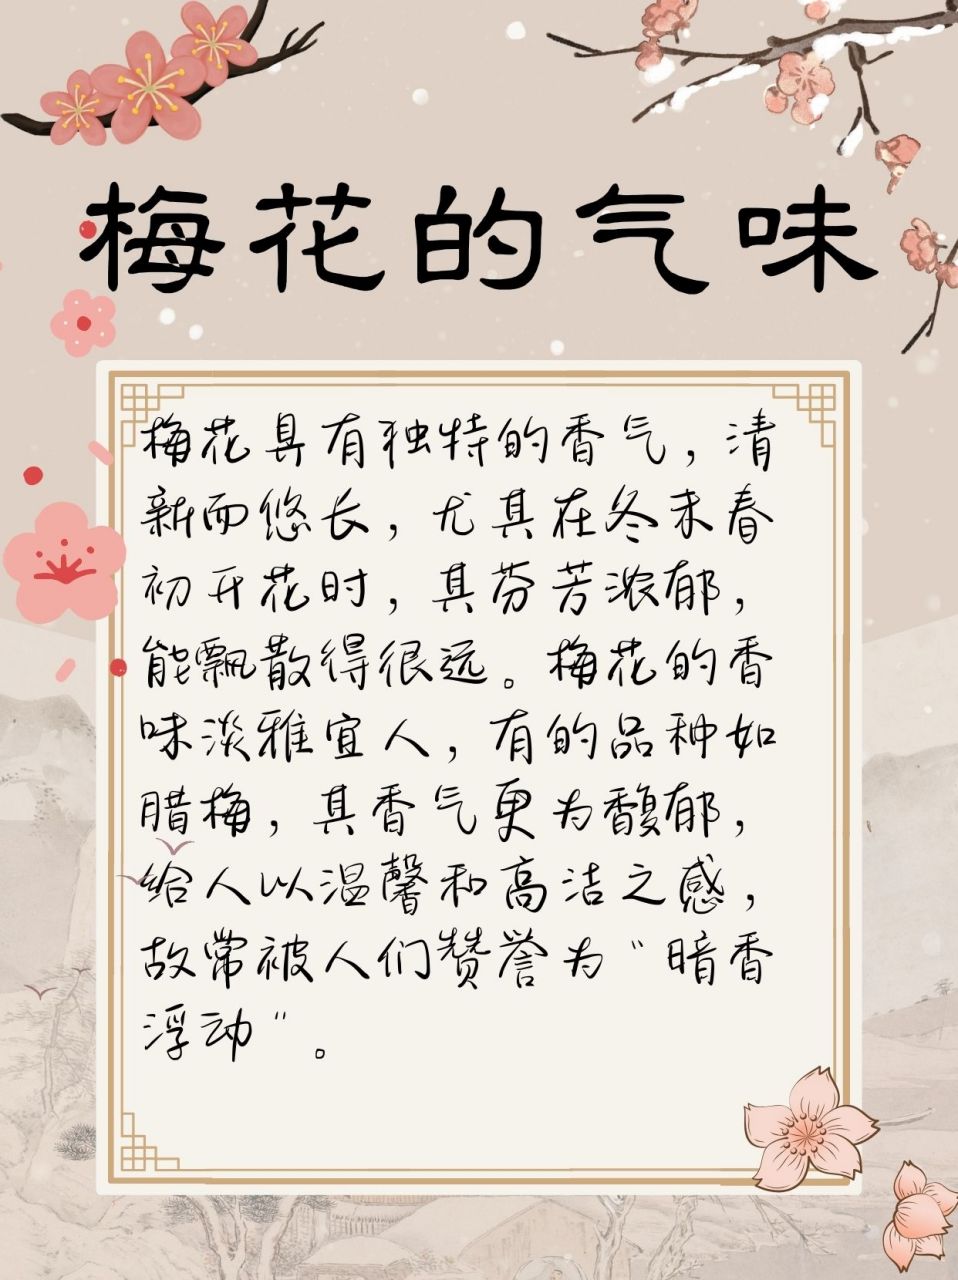 梅花的气味
梅花具有独特的香气，清
新而悠长，尤其在冬末春
初开花时，其芬芳浓郁，
能飘散得很远。梅花的香
味淡雅宜人，有的品种如
腊梅，其香气更为馥郁，
给人以温馨和高洁之感，
故常被人们赞誉为“暗香
浮动”。